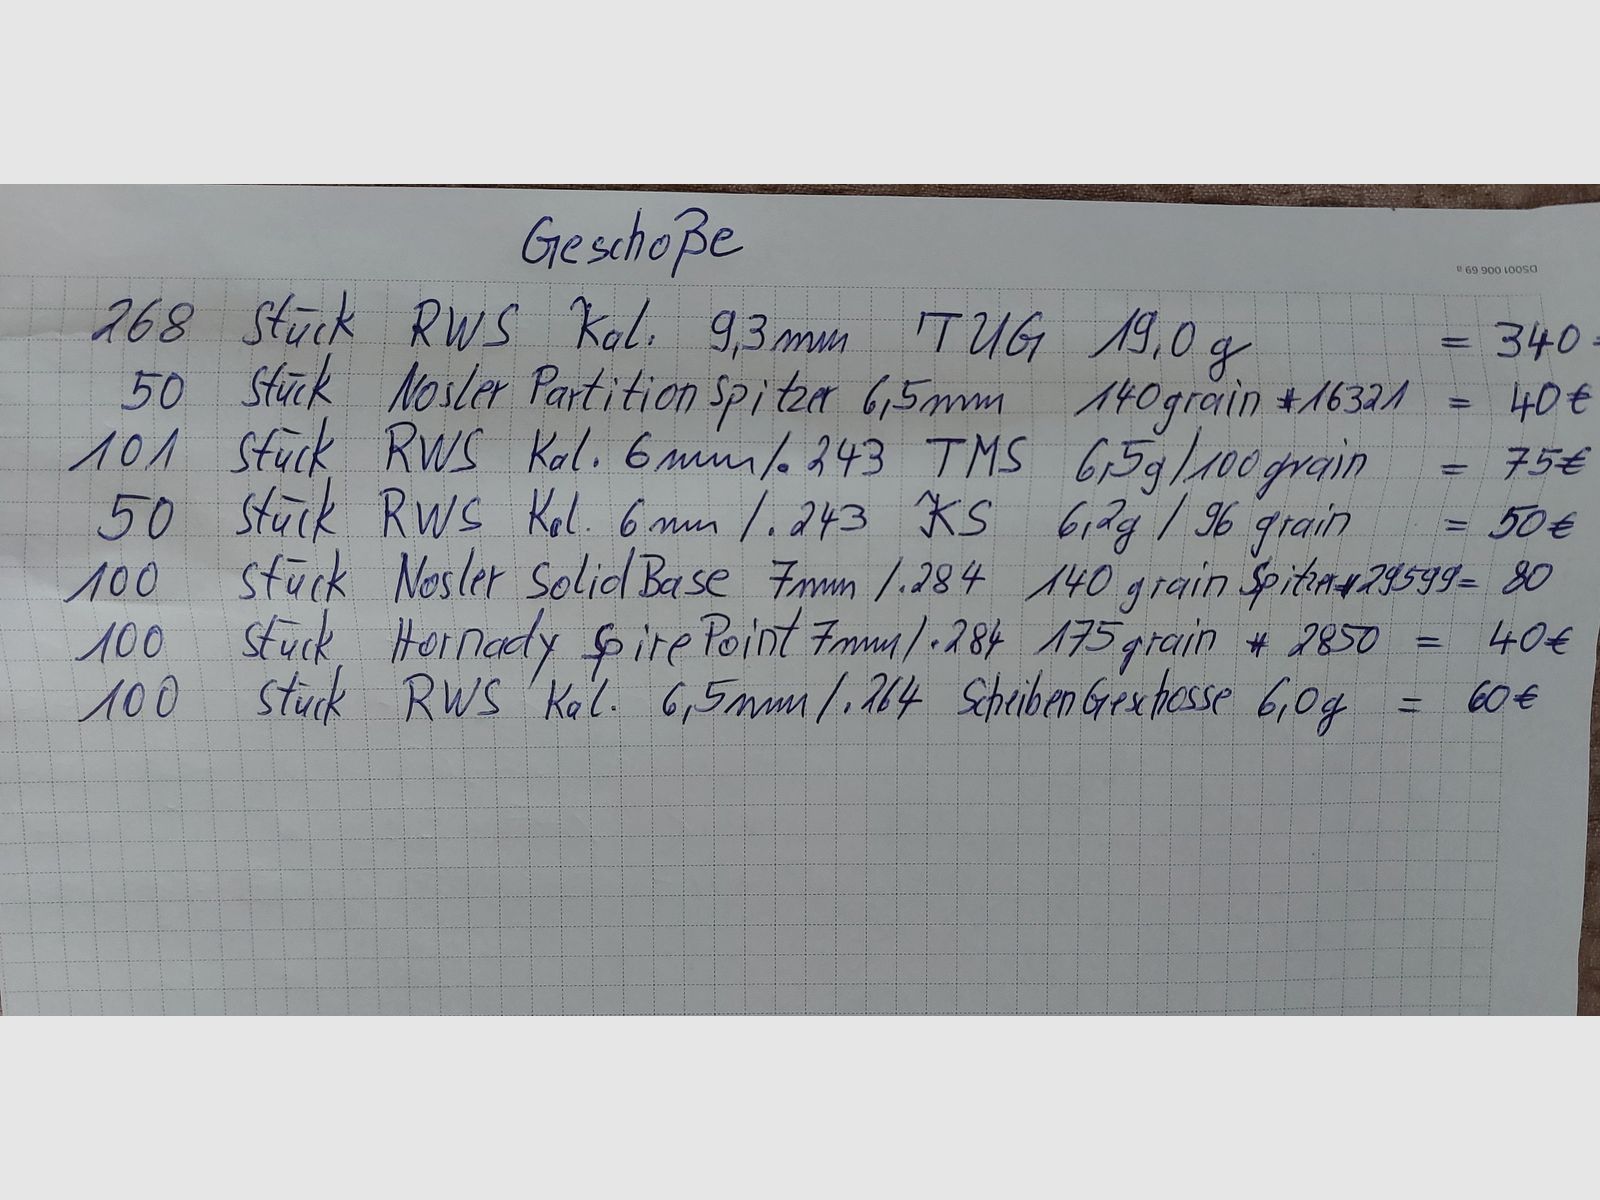 Geschoße
DS001 006 69 a
268 Stück RWS Kal. 9,3mm TUG 19,0g = 340
50 Stück Nosler Partition Spitzer 6,5mm 140grain *16321 = 40€
101 Stück RWS Kal. 6mm/.243 TMS 6,5g/100grain = 75€
50 Stück RWS Kal. 6mm/.243 KS 6,2g/96 grain = 50€
100 Stück Nosler Solid Base 7mm/.284 140 grain Spitzer*29599= 80
100 Stück Hornady Spire Point 7mm/.284 175grain * 2850 = 40€
100 Stück RWS Kal. 6,5mm/.264 Scheiben Geschosse 6,0g = 60€